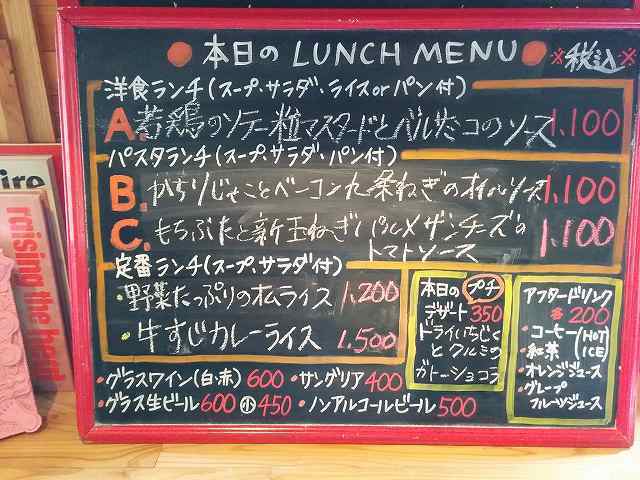 本日のLUNCH MENU
※税込※
洋食ランチ(スープ・サラダ・ライスorパン付)
A. 若鶏のソテー粒マスタードとバルサミコのソース 1,100
パスタランチ(スープ・サラダ・パン付)
B. かちりじゃことベーコン九条ねぎのオイルソース 1,100
C. もちぶたと新玉ねぎパルメザンチーズの
トマトソース 1,100
定番ランチ(スープ・サラダ付)
・野菜たっぷりのオムライス 1,200
・牛すじカレーライス 1,500
本日のプチ
デザート 350
ドライいちじく
とクルミの
ガトーショコラ
アフタードリンク
200
・コーヒー(HOT)
・紅茶 (ICE)
・オレンジジュース
・グレープ
フルーツジュース
・グラスワイン(白・赤) 600 ・サングリア 400
・グラス生ビール 600 小 450 ・ノンアルコールビール 500
ire
raising the heat